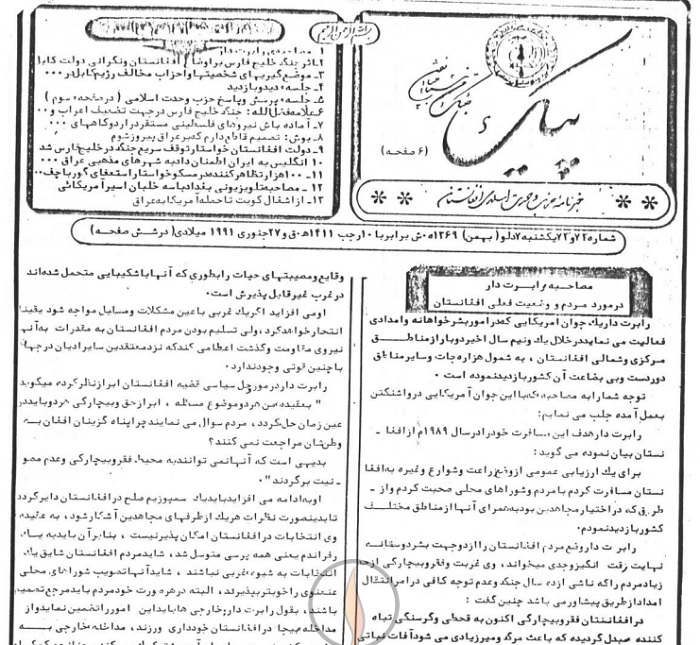 بسم الله الرحمن الرحیم
پیک
(۶ صفحه)
خبرنامه حزب وحدت اسلامی افغانستان
۱ـ مصاحبه با رابرت دار
۲ـ اثر جنگ خلیج فارس بر اوضاع افغانستان و نگرانی دولت کابل
۳ـ موضع گیریهای شخصیتها و احزاب مخالف رژیم کابل در ۰۰۰
۴ـ جلسه دید و بازدید
۵ـ جلسه پرسش و پاسخ حزب وحدت اسلامی ( در صفحه سوم )
۶ـ علامه فضل الله : جنگ خلیج فارس در جهت تضعیف اعراب و ۰۰
۷ـ آماده باش نیروهای فلسطینی مستقر در اردوگاههای ۰۰۰
۸ـ بوش: تصمیم قاطع دارم که بر عراق پیروز شوم
۹ـ دولت افغانستان خواستار توقف سریع جنگ در خلیج فارس شد
۱۰ انگلیس به ایران اطمنان داد به شهرهای مذهبی عراق ۰۰۰
۱۱ـ ۱۰۰ هزار تظاهر کننده در مسکو خواستار استعفای گورباچف ۰۰
۱۲ـ مصاحبه تلویزیونی بغداد با سه خلبان اسیر آمریکائی
۱۳ـ از اشغال کویت تا حمله آمریکا به عراق
شماره ۲۲ و ۲۳ یکشنبه ۷ دلو ( بهمن ) ۱۳۶۹ ه ش برابر با ۱۰ رجب ۱۴۱۱ ه ق و ۲۷ جنوری ۱۹۹۱ میلادی ( در شش صفحه )
مصاحبه با رابرت دار
در مورد مردم و وضعیت فعلی افغانستان
رابرت دار یک جوان امریکایی که در امور بشر خواهانه و امدادی
فعالیت می نماید در خلال یک و نیم سال اخیر دوبار از مناطق
مرکزی و شمالی افغانستان ، به شمول هزاره جات و سایر مناطق
دوردست و بی بضاعت آن کشور بازدید نموده است ۰
توجه شما را به مصاحبه که با این جوان آمریکایی در واشنگتن
بعمل آمده جلب می نمایم :
رابرت دار هدف این مسافرت خود را در سال ۱۹۸۹م از افغا ـ
نستان بیان نموده می گوید :
برای یک ارزیابی عمومی از وضع زراعت و شوارع و غیره به افغا
نستان مسافرت کردم با مردم و شوراهای محلی صحبت کردم و از ـ
طرق که در اختیار مجاهدین بود به همرای آنها از مناطق مختلف
کشور بازدید نمودم ۰
رابرت دار وضع مردم افغانستان را از دو جهت بشر دوستانه
نهایت رقت انگیز و جدی میخواند ، وی غربت و فقر و بیچارگی از حد
زیاد مردم را که ناشی از ده سال جنگ و عدم توجه کافی در امر انتقال
امداد از طریق پیشاور می باشد چنین گفت :
در افغانستان فقر و بیچارگی اکنون به قحطی و گرسنگی تباه
کننده مبدل گردیده که باعث مرگ و میر زیادی می شود آفات نباتی
وقایع و مصیبتهای حیات را بطوری که آنها با شکیبایی متحمل شده اند
در غرب غیر قابل پذیرش است ۰
اومی افزاید اگر یک غربی با عین مشکلات و مسایل مواجه شود یقینا
انتحار خواهد کرد، ولی تسلیم بودن مردم افغانستان به مقدرات به آنها
نیروی مقاومت و گذشت اعطا می کند که نزد معتقدین سایر ادیان در جهان
با چنین قوتی وجود ندارد ۰
رابرت دار در مورد حل سیاسی قضیه افغانستان ابراز نظر کرده میگوید
" بعقیده من هر دو موضوع مسئله ، ابراز حق و بیچارگی هر دو باید در
عین زمان حل گردد ، مردم سوال می نمایند چرا پناه گزینان افغان به
وطن شان مراجعت نمی کنند؟
بدیهی است که آنها نمی توانند به محیط فقر و بیچارگی و عدم مصو
ـ نیت برگردند " ۰
او به ادامه می افزاید باید یک سمپوزیم ملح در افغانستان دایر گردد
تا بدینصورت نظرات هر یک از طرفهای مجاهدین آشکار شود ، به عقیده
وی انتخابات در افغانستان امکان پذیر نیست ، بنابر آن باید به یک
رفراندم یعنی همه پرسی متوسل شد ، شاید مردم افغانستان شایق یک
انتخابات به شیوه غربی نباشند ، شاید آنها تصویب شوراهای محلی
عنعنوی را خوبتر بپذیرند ، البته در هر صورت خود مردم باید مرجع تصمیم
باشند ، بقول رابرت دار خارجی ها باید این امور را تضمین نماید و از
مداخله بیجا در افغانستان خودداری ورزند ، مداخله خارجی به